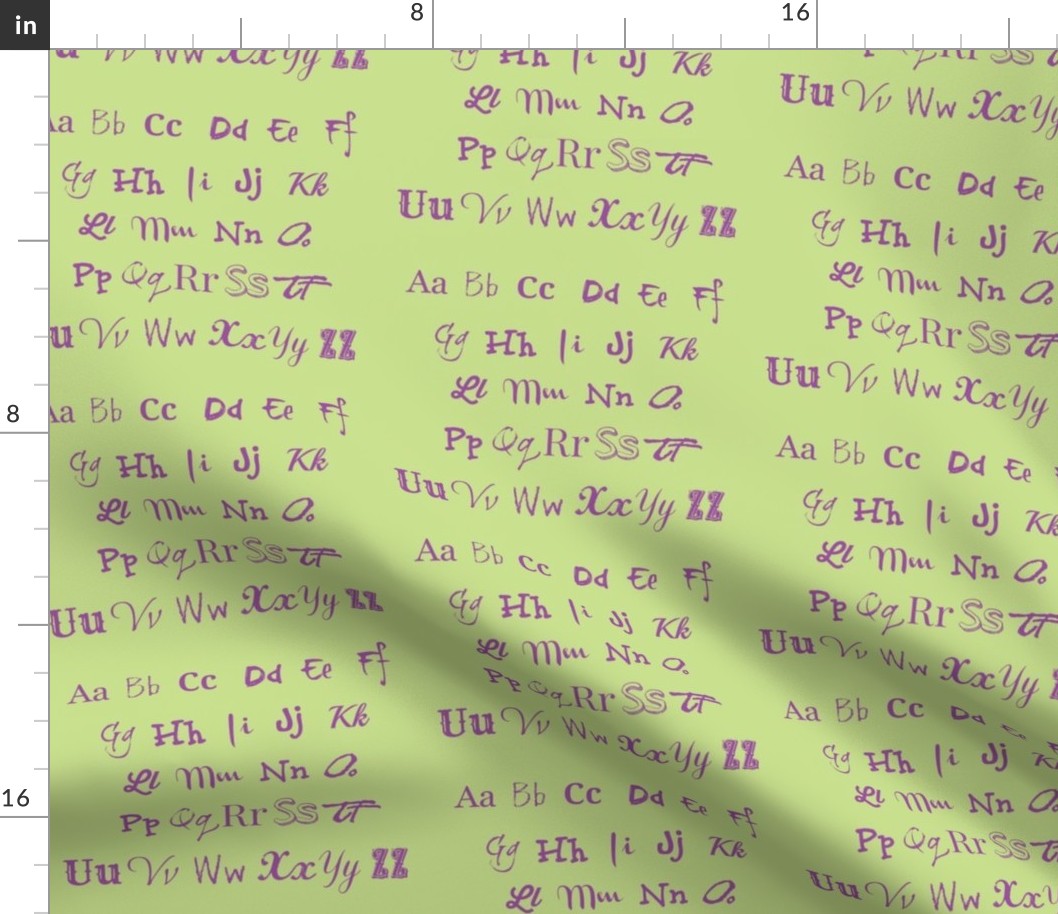 in
8
16
u Vv Ww Xx Yy ZZ
Aa Bb Cc Dd Ee Ff
Gg Hh Ii Jj Kk
Ll Mm Nn Oo
Pp Qq Rr Ss Tt
u Vv Ww Xx Yy ZZ
8
Aa Bb Cc Dd Ee Ff
Gg Hh Ii Jj Kk
Ll Mm Nn Oo
Pp Qq Rr Ss Tt
Uu Vv Ww Xx Yy ZZ
Aa Bb Cc Dd Ee Ff
Gg Hh Ii Jj Kk
Ll Mm Nn Oo
16
Pp Qq Rr Ss Tt
Uu Vv Ww Xx Yy ZZ
Gg Hh Ii Jj Kk
Ll Mm Nn Oo
Pp Qq Rr Ss Tt
Uu Vv Ww Xx Yy ZZ
Aa Bb Cc Dd Ee Ff
Gg Hh Ii Jj Kk
Ll Mm Nn Oo
Pp Qq Rr Ss Tt
Uu Vv Ww Xx Yy ZZ
Aa Bb Cc Dd Ee Ff
Gg Hh Ii Jj Kk
Ll Mm Nn Oo
Pp Qq Rr Ss Tt
Uu Vv Ww Xx Yy ZZ
Aa Bb Cc Dd Ee Ff
Gg Hh Ii Jj Kk
Ll Mm Nn Oo
Uu Vv Ww Xx Yy
Aa Bb Cc Dd Ee
Gg Hh Ii Jj Kk
Ll Mm Nn Oo
Pp Qq Rr Ss Tt
Uu Vv Ww Xx Yy
Aa Bb Cc Dd Ee
Gg Hh Ii Jj Kk
Ll Mm Nn Oo
Pp Qq Rr Ss Tt
Uu Vv Ww Xx Yy
Aa Bb Cc Dd Ee
Gg Hh Ii Jj
Ll Mm Nn Oo
Pp Qq Rr Ss Tt
Uu Vv Ww Xx